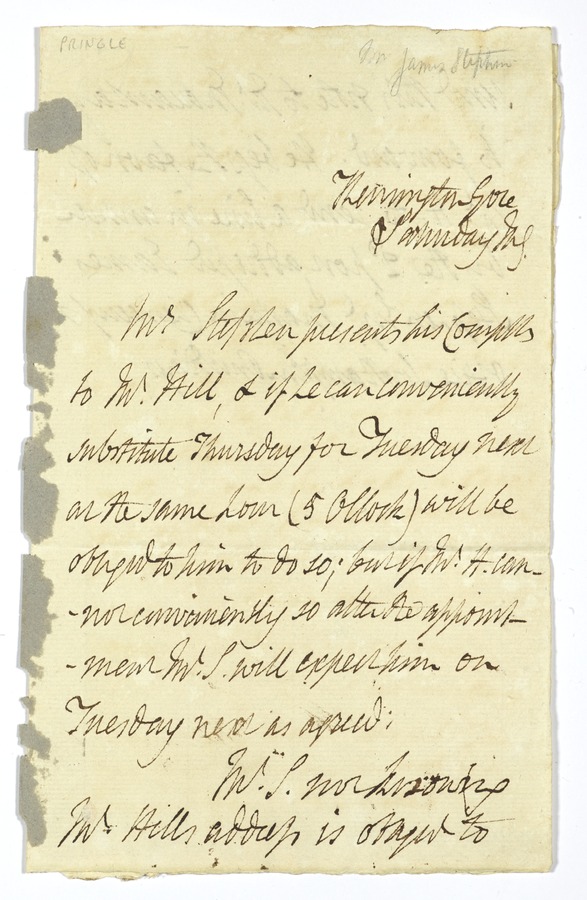 PRINGLE
James Stephen
Kensington Gore
Saturday Mg.
Mr. Stephen presents his Complts
to Mr. Hill, & if he can conveniently
substitute Thursday for Tuesday next
at the same hour (5 OClock) will be
obliged to him to do so; but if Mr. H. can-
-not conveniently so alter the appoint-
-ment Mr. S. will expect him on
Tuesday next as agreed.
Mr. S. not knowing
Mr. Hills address is obliged to